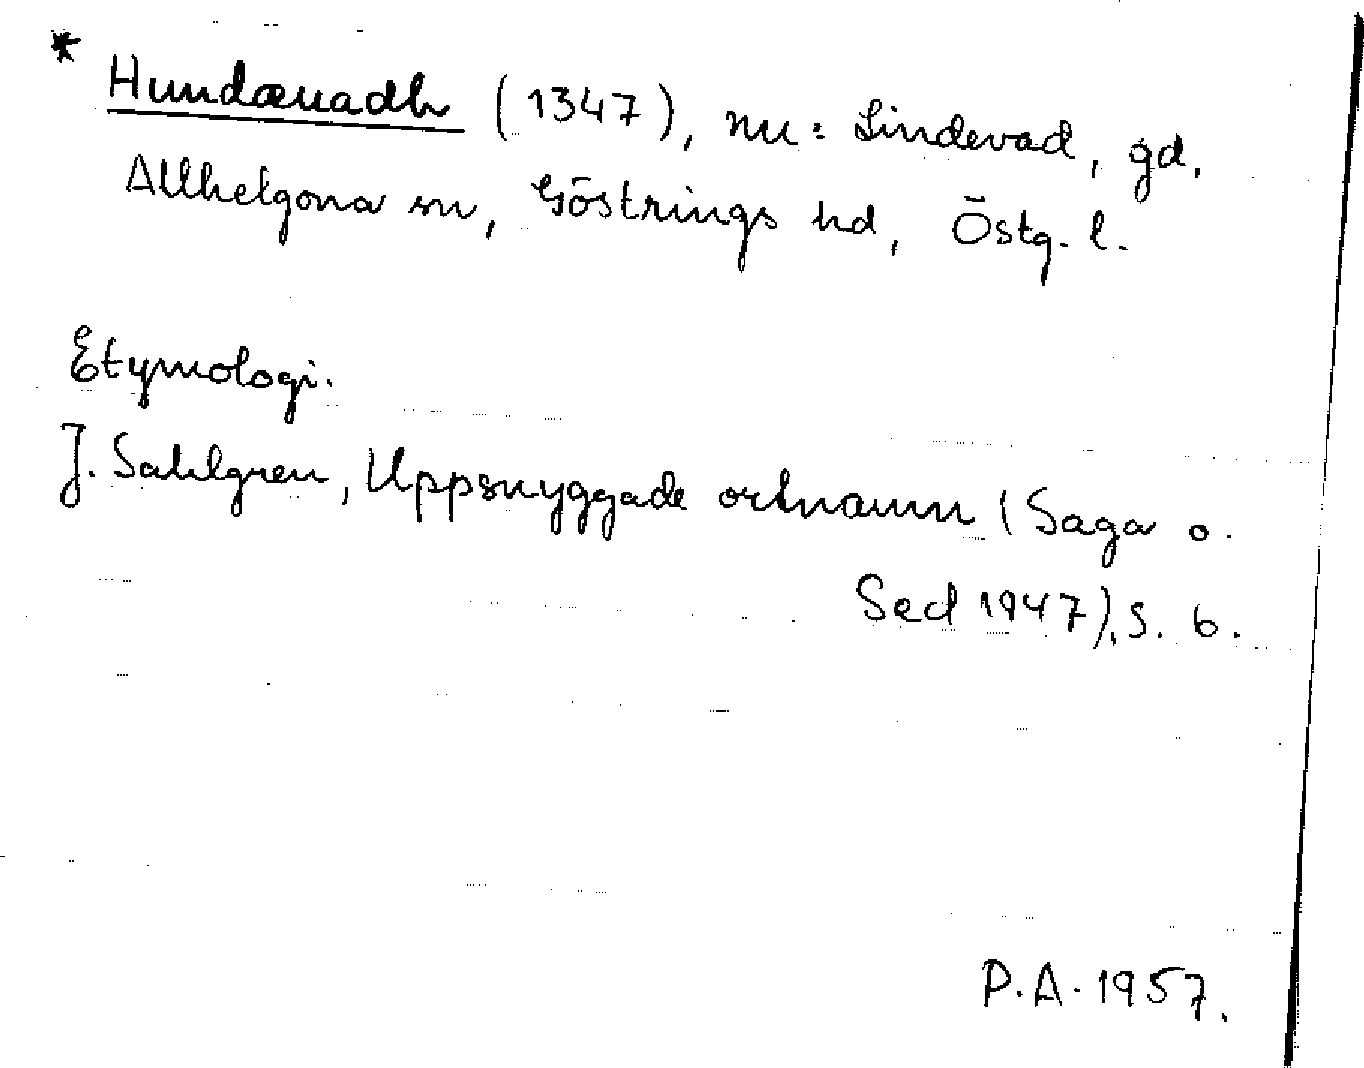 * Hundæuadh (1347), nu: Lindevad, gd,
Allhelgona sn, Göstrings hd, Östg. l.
Etymologi.
J. Sahlgren, Uppsnyggade ortnamn (Saga o.
Sed 1947), S. 6.
P.A. 1957.